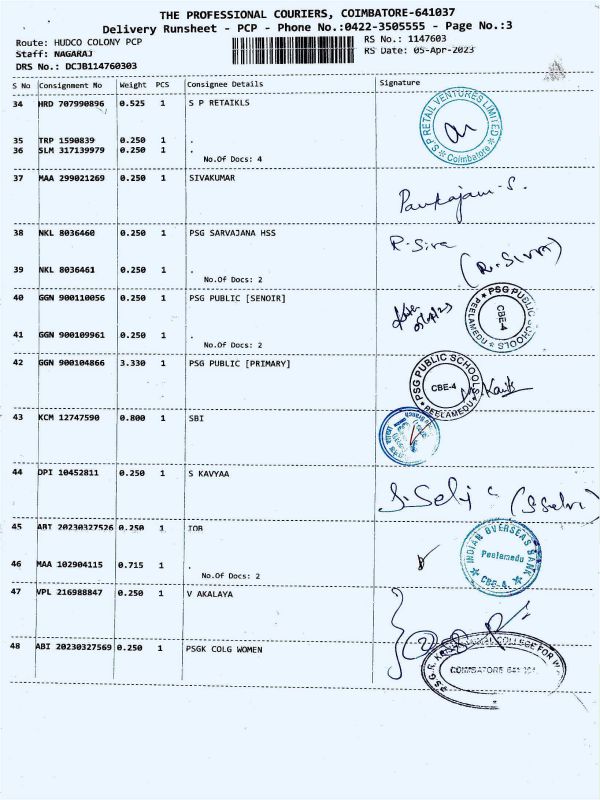 THE PROFESSIONAL COURIERS, COIMBATORE-641037
Delivery Runsheet - PCP - Phone No.:0422-3505555 - Page No.:3
Route: HUDCO COLONY PCP
RS No.: 1147603
Staff: NAGARAJ
RS Date: 05-Apr-2023
DRS No.: DCJB114760303
S No Consignment No Weight PCS Consignee Details Signature
34 HRD 707990896 0.525 1 S P RETAIKLS
S P RETAIL VENTURES LIMITED
Coimbatore
35 TRP 1590839 0.250 1 .
36 SLM 317139979 0.250 1 .
No.Of Docs: 4
37 MAA 299021269 0.250 1 SIVAKUMAR
Pankajam-S.
38 NKL 8036460 0.250 1 PSG SARVAJANA HSS
R-Siva
(R.SIVA)
39 NKL 8036461 0.250 1 .
No.Of Docs: 2
40 GGN 900110056 0.250 1 PSG PUBLIC [SENOIR]
PSG PUBLIC SCHOOLS
CBE-4
PEELAMEDU
41 GGN 900109961 0.250 1 .
No.Of Docs: 2
42 GGN 900104866 3.330 1 PSG PUBLIC [PRIMARY]
PSG PUBLIC SCHOOLS
CBE-4
PEELAMEDU
43 KCM 12747590 0.800 1 SBI
44 DPI 10452811 0.250 1 S KAVYAA
S. Selvi
(S Selvi)
45 ABI 20230327526 0.250 1 IOB
INDIAN OVERSEAS BANK
Peelamedu
CBE-4.
46 MAA 102904115 0.715 1 .
No.Of Docs: 2
47 VPL 216988847 0.250 1 V AKALAYA
48 ABI 20230327569 0.250 1 PSGK COLG WOMEN
COLLEGE FOR W
COIMBATORE 641